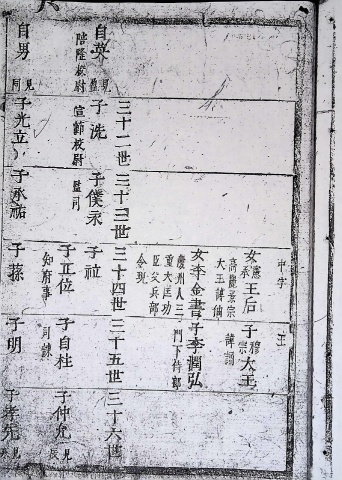 中字 王
女 憲承 王后 子 穆宗 大王
高麗景宗 諱誦
大王諱伷
女李金書 子李潤弘
慶州人三 門下侍郎
重大匡功
臣父兵部
令現
三十二世 三十三世 三十四世 三十五世 三十六世
自英 子洗 子僕永 子社
見 階隆校尉 宣節校尉 監司
子正位 子自柱 子仲允
知府事 司諫 見
自男 子光立 子承祐 子蓀 子明 子孝先
見同 見